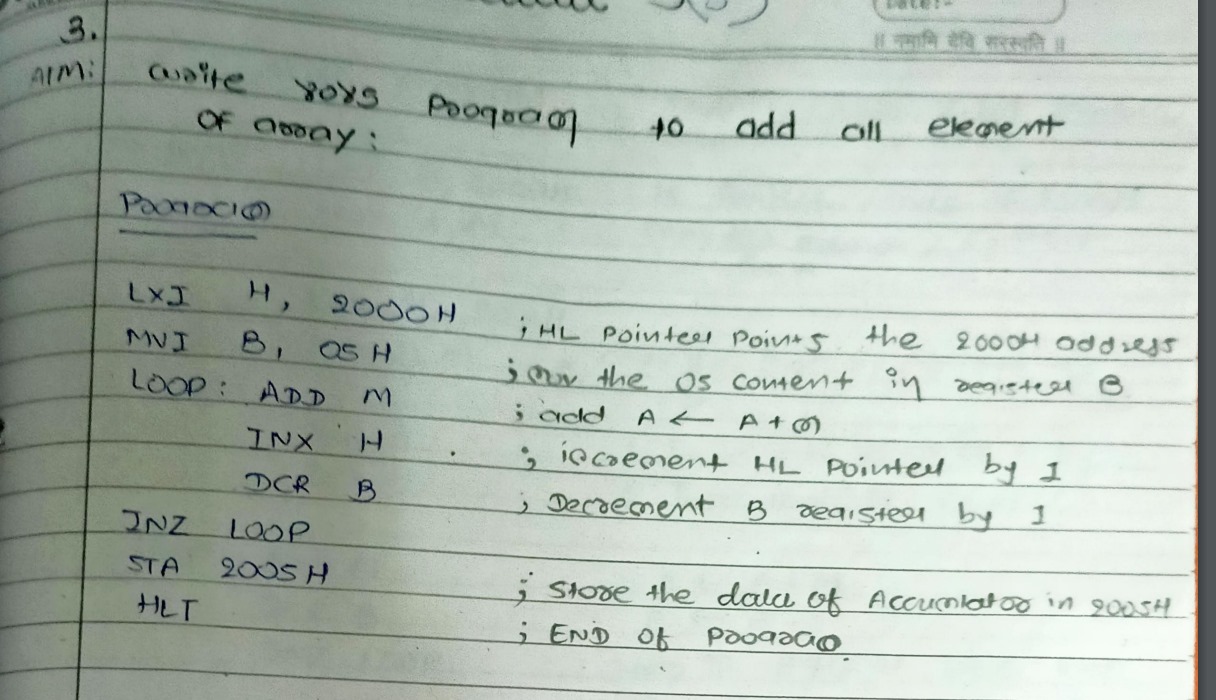 Date:-
॥ नमामि देवि सरस्वति ॥
3.
AIM: write 8085 Program to add all element
of array:
Program
LXI H, 2000H ; HL pointer points the 2000H address
MVI B, 05H ; the 05 content in register B
LOOP: ADD M ; add A ← A + m
INX H ; increment HL pointer by 1
DCR B ; Decrement B register by 1
JNZ LOOP
STA 2005H ; store the data of Accumlator in 2005H
HLT ; END of program